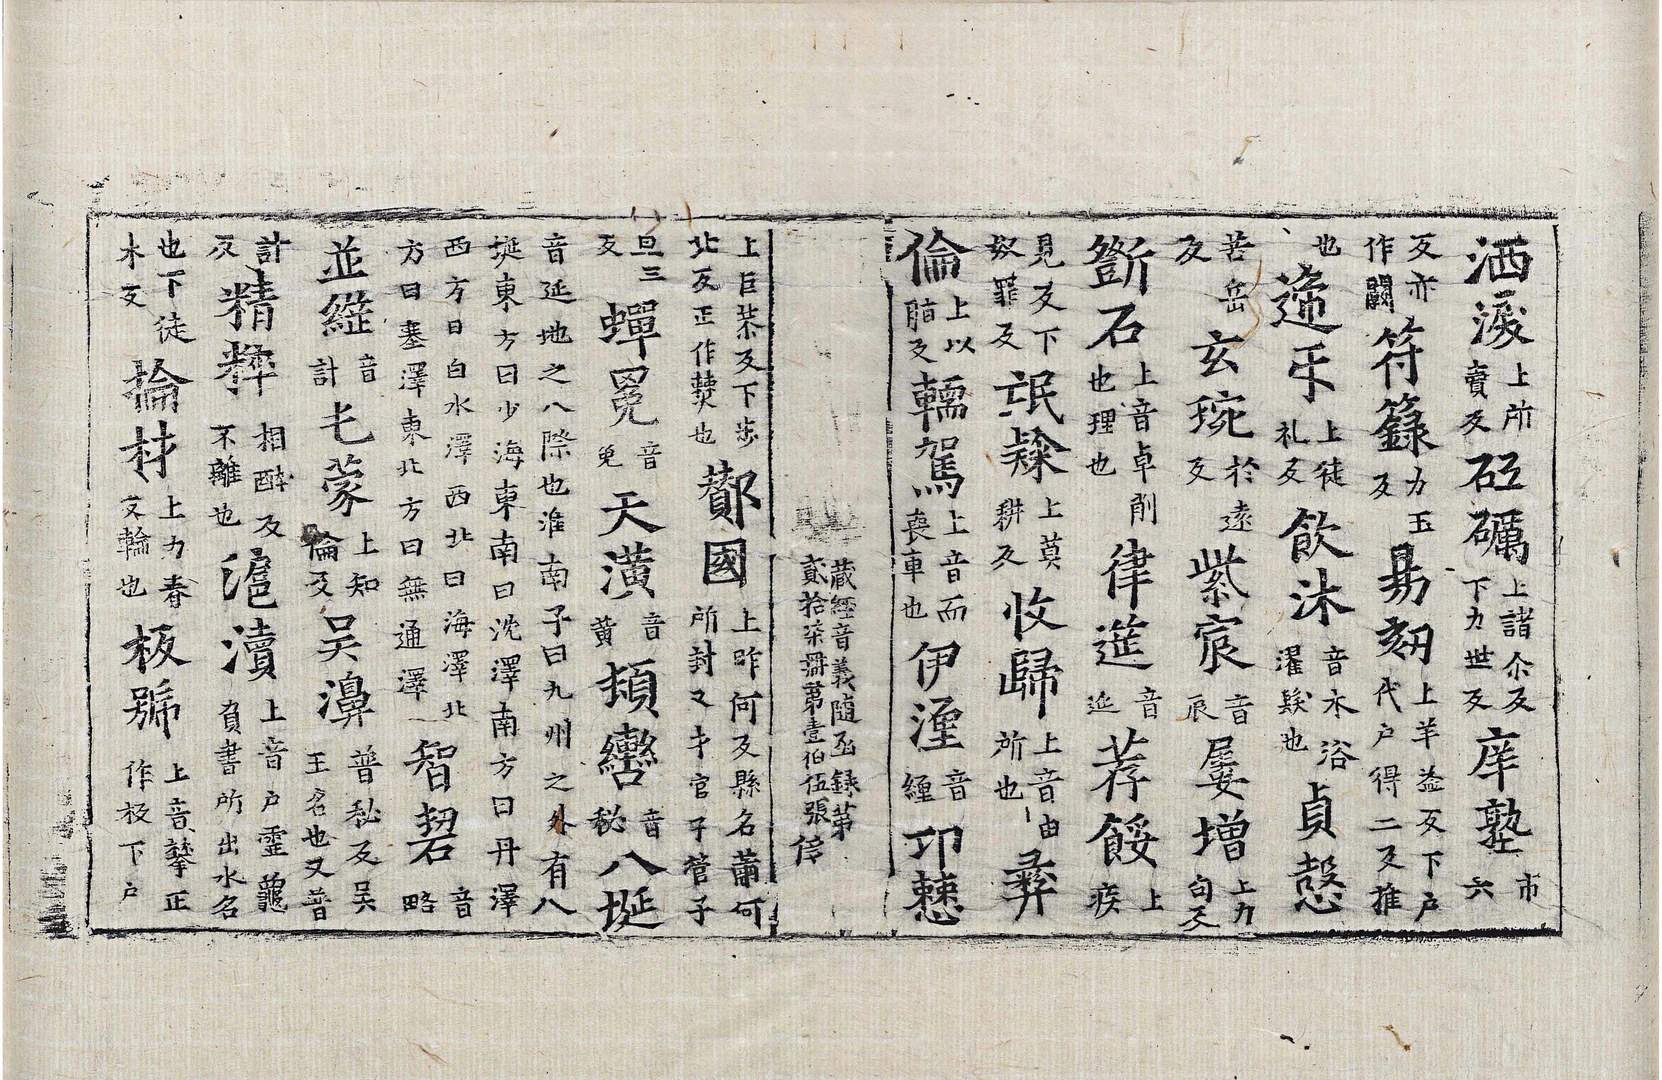 洒淚上所賣反砥礪上諸尒反下力世反庠塾市六
反亦作闢符籙力玉反昜剏上羊益反下尸代尸得二反推
也遞乐上徒礼反飲沐音木浴濯髮也貞慤
苦岳反玄琬於遠反紫宸音辰屢增上力句反
斵石上音卓削也理也律莚音延荐餒上疾
見反下奴罪反氓𥻦上莫耕反收歸上音由所也彞
倫上以脂反轜駕上音而喪車也伊湮音緾卭㦗
藏經音義隨函錄第貳拾柒冊第壹伯伍張
上巨恭反下步北反正作僰也酇國上昨何反縣名蕭何所封又才官子管子
旦三反蟬冕音免天潢音黃頻轡音秘八埏
音延地之八際也淮南子曰九州之外有八
埏東方曰少海東南曰沈澤南方曰丹澤
西方曰白水澤西北曰海澤北
方曰塞澤東北方曰無通澤智䂮音略
並繼音計乇蒙上知倫反吴濞普秘反吴王名也又普
計反精粹相醉反不離也滬瀆上音户靈龜負書所出水名
也下徒木反掄材上力春反輪也板號上音攀正作板下户